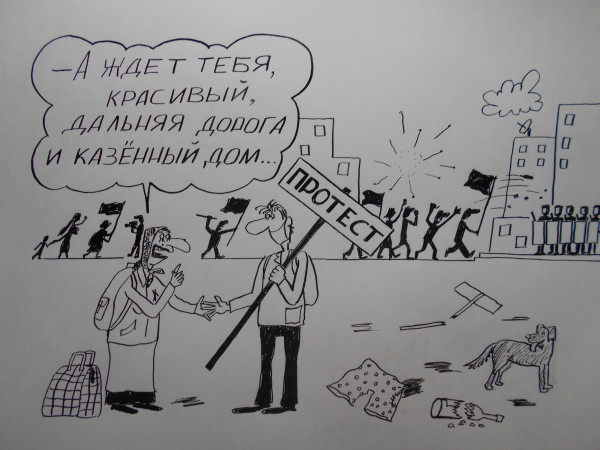 — А ЖДЕТ ТЕБЯ,
КРАСИВЫЙ,
ДАЛЬНЯЯ ДОРОГА
И КАЗЁННЫЙ ДОМ...
ПРОТЕСТ